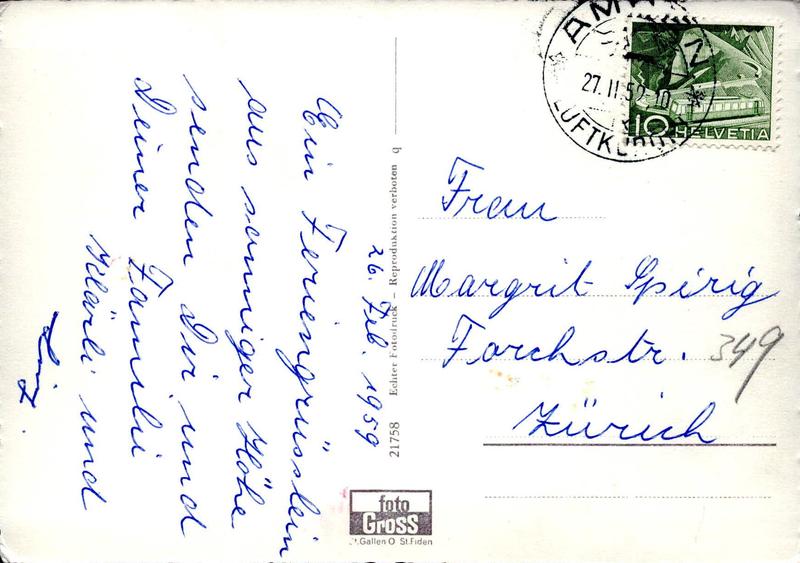 26. Feb. 1959
Ein Feriengrüsslein
aus sonniger Höhe
senden Dir und
Deiner Familie
Klärli und
Frau
Margrit Spirig
Forchstr. 349
Zürich
AMDEN
27.II.59-10
LUFTKURORT
10 HELVETIA
21758 Echter Fotodruck – Reproduktion verboten q
foto
Gross
St.Gallen O St.Fiden